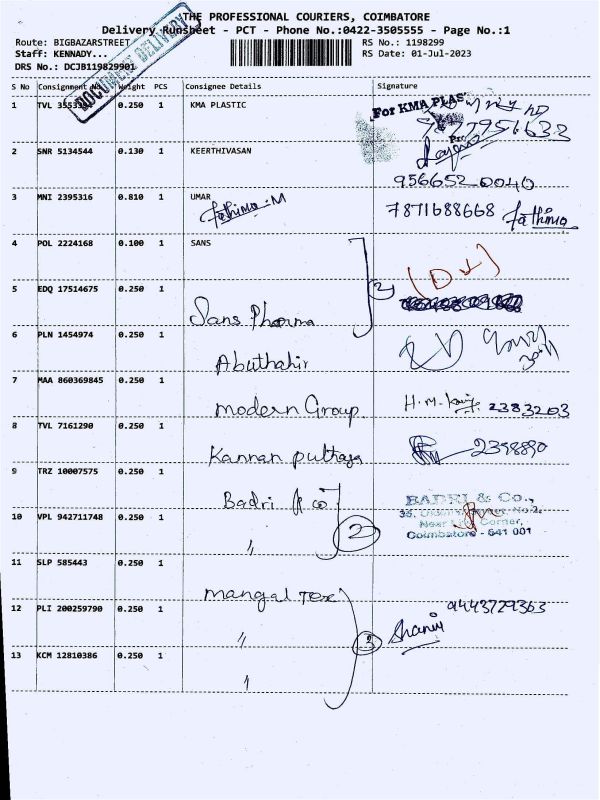 THE PROFESSIONAL COURIERS, COIMBATORE
Delivery Runsheet - PCT - Phone No.:0422-3505555 - Page No.:1
Route: BIGBAZARSTREET
RS No.: 1198299
Staff: KENNADY...
RS Date: 01-Jul-2023
DRS No.: DCJB119829901
DOCUMENT DELIVERY
S No Consignment No Weight PCS Consignee Details Signature
1 TVL 0.250 1 KMA PLASTIC
For KMA PLAS
2 SNR 5134544 0.130 1 KEERTHIVASAN
9566520040
3 MNI 2395316 0.810 1 UMAR
Fathima.M
7871688668 Fathima
4 POL 2224168 0.100 1 SANS
2
5 EDQ 17514675 0.250 1
Sans Pharma
6 PLN 1454974 0.250 1
Abuthahir
7 MAA 860369845 0.250 1
Modern Group
H.M. 2383203
8 TVL 7161290 0.250 1
Kannan
2398890
9 TRZ 10007575 0.250 1
Badri & co
BADRI & Co.,
Corner,
Coimbatore - 641 001
10 VPL 942711748 0.250 1
〃
2
11 SLP 585443 0.250 1
Mangal Tex
9443729363
12 PLI 200259790 0.250 1
〃
3
13 KCM 12810386 0.250 1
〃